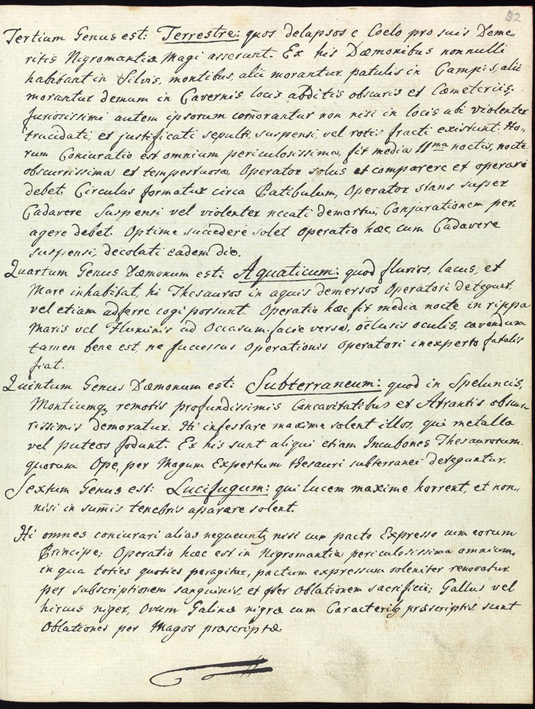 32
Tertium Genus est: Terrestre: quos delapsos e Coelo pro suis Deme
ritis Nigromantiæ Magi asserunt. Ex his Dæmonibus nonnulli
habitant in Silvis, montibus, alii morantur patulis in Campis, alii
morantur demum in Cavernis locis abditis obscuris et Cœmeteriis,
furiosissimi autem ipsorum com̄orantur non nisi in locis ubi violenter
trucidati, et justificati sepulti, suspensi, vel rotis fracti existunt. Ho-
rum Coniuratio est omnium periculosissima, fit media 11ma noctis, nocte
obscurissima et tempestuosa, Operator solus et comparere et operare
debet. Circulus formatur circa Patibulum, Operator stans super
Cadavere Suspensi vel violenter necati demortui, Conjurationem per
agere debet. Optime succedere solet Operatio hæc, cum Cadavere
suspensi, decolati eadem die.
Quartum Genus Dæmonum est: Aquaticum: quod fluvios, lacus, et
Mare inhabitat, hi Thesauros in aquis demersos Operatori deteguet,
vel etiam adferre cogi possunt. Operatio hæc fit media nocte in rippa
Maris vel Fluminis ad Occasum facie versa, oclusis oculis, cavendum
tamen bene est, ne successus Operationis Operatori inexperto fatalis
fiat.
Quintum Genus Dæmonum est: Subterraneum: quod in Speluncis,
Montiumq, remotis profundissimis Concavitatibus et Atrantis obscu-
rissimis demoratur. Hi infestare maxime solent illos, qui metalla
vel puteos fodunt. Ex his sunt aliqui etiam Incubones Thesaurorum.
quorum Ope, per Magum Expertum thesauri subterranei deteguntur.
Sextum Genus est: Lucifugum: qui lucem maxime horrent, et non-
nisi in sum̄is tenebris aparare solent.
Hi omnes coniurari alias nequeunt, nisi cum pacto Expresso cum eorum
Principe; Operatio hæc est in Nigromantia periculosissima omnium,
in qua toties quoties peragitur, pactum expressum solenniter renovatur
per subscriptionem sanguinis et per Oblationem sacrificii; Gallus vel
hircus niger, Ovum Galinæ nigræ cum Caracteribq præscriptis sunt
Oblationes per Magos præscriptæ